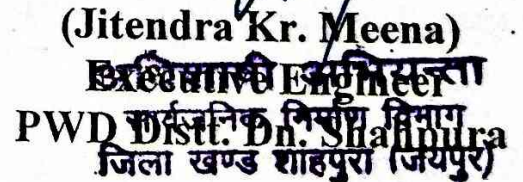 (Jitendra Kr. Meena)
Executive Engineer
अधिशाषी अभियन्ता
PWD Distt. Dn. Shahpura
सार्वजनिक निर्माण विभाग
जिला खण्ड शाहपुरा (जयपुर)